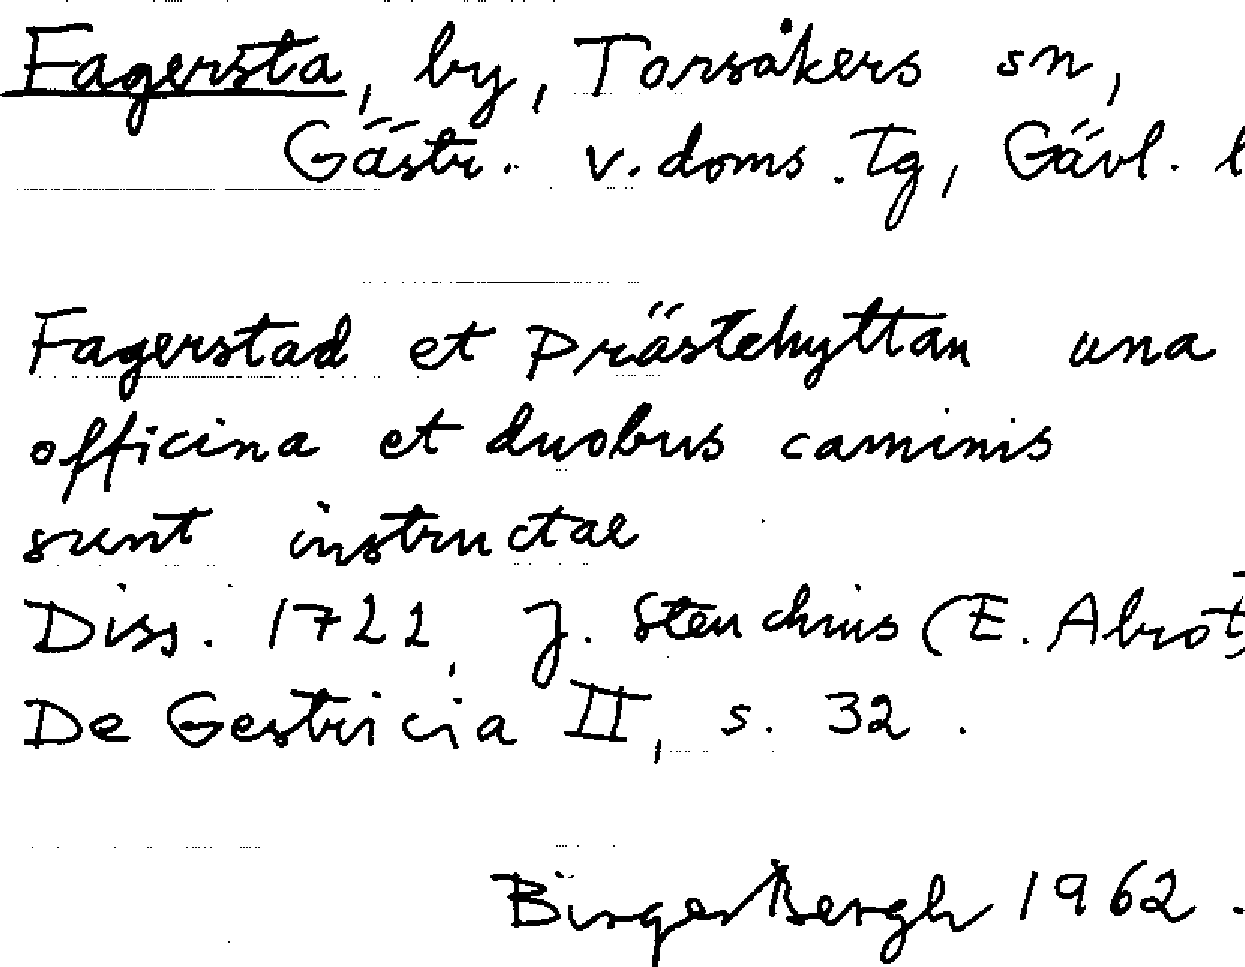 Fagersta, by, Torsåkers sn,
Gästr. v. doms. tg, Gävl. l
Fagerstad et Prästehyttan una
officina et duobus caminis
sunt instructae
Diss. 1722, J. Stenchius (E. Alrot)
De Gestricia II, s. 32.
Birger Bergh 1962.